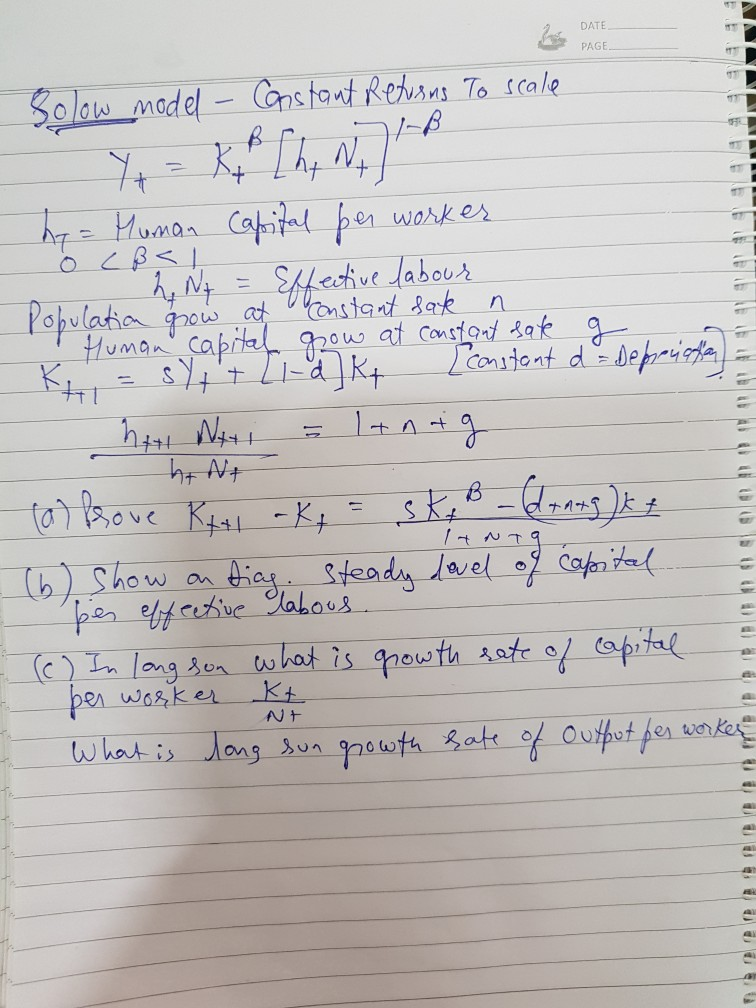 DATE
PAGE
Solow model – Constant Returns To scale
Y_t = K_t^β [h_t N_t]^{1-β}
h_T = Human Capital per worker
0 < β < 1
h_t N_t = Effective labour
Population grow at constant rate n
Human capital grow at constant rate g
K_{t+1} = sY_t + [1-d]K_t [constant d = Depreciation]
h_{t+1} N_{t+1} / h_t N_t = 1+n+g
(a) Prove K_{t+1} - K_t = sK_t^β - (d+n+g)k_t / 1+n+g
(b) Show on diag. steady level of capital
per effective labour.
(c) In long run what is growth rate of capital
per worker K_t / N_t
What is long run growth rate of output per worker